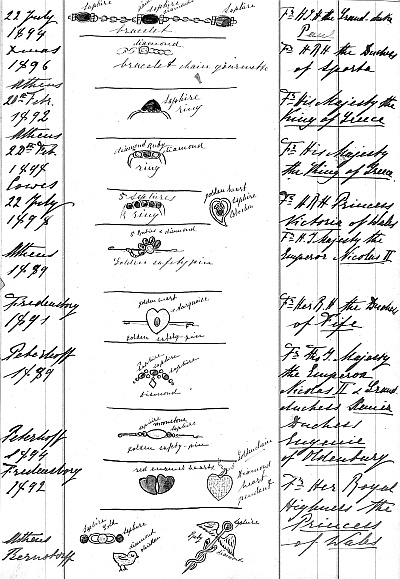 sapphire
sapphire
22 July
1894
bracelet
Xmas
1896
diamond
bracelet chain gourmette
Fr. H.R.H the Duchess
of Sparta
Athens
20th Feb.
1892
saphire
ring
Fr. His Majesty the
King of Greece
Athens
22nd Feb.
diamond Ruby diamond
ring
Fr. His Majesty
the King of Greece
Cowes
22 July
5 saphires
ring
golden heart
saphire
Fr. H.R.H Princess
Victoria of Wales
Athens
1889
5 Rubies & diamond
Golden safety pin
Fr. H.I. Majesty the
Emperor Nicolas II
Fredensborg
1891
golden heart
turquoise
golden safety-pin
Fr. Her R.H the Duchess
of Fife
Peterhoff
1889
saphire
saphire
diamond
Fr. Th. I. Majesty
the Emperor
Nicolas II & Grand
duchess Xenia
Peterhoff
1894
saphire
moonstone
saphire
golden safety-pin
Duchess
Eugenie
of Oldenburg
Fredensborg
1892
red enamel hearts
Golden chain
Diamond
heart
pendant
Fr. Her Royal
Highness the
Princess
of Wales
Athens
Bernstorff
Saphire
Gold
Saphire
diamond
chicken
Saphire
Ruby
diamond